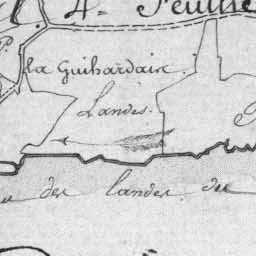 4e Feuille
la Guihardais.
Landes.
des landes du